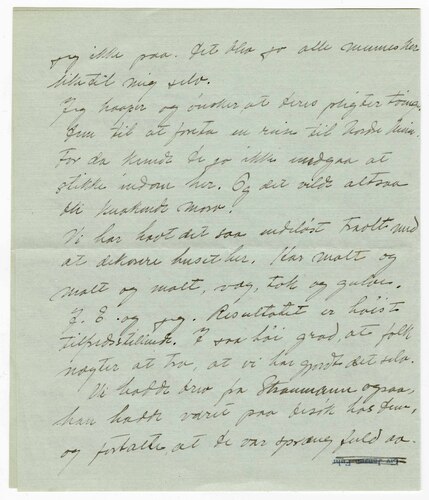 jeg ikke paa. Det blir jo alle mennesker
til mig selv.
Jeg haaper og ønsker at deres pligter
Dem til at foreta en reise til Nordre
For da kunde De jo ikke undgaa at
stikke indom her. Og det vilde altsaa
bli knakende moro!
Vi har havt det saa endeløst travlt med
at dekorere huset her. Har malt og
malt og malt, væg, tak og gulve.
J. E. og jeg. Resultatet er høist
tilfredsstillende. I saa høi grad, at folk
nægter at tro, at vi har gjort det selv.
Vi hadde brev fra Straumann ogsaa,
han hadde været paa besøk hos Dem,
og fortalte at De var sprængfuld av